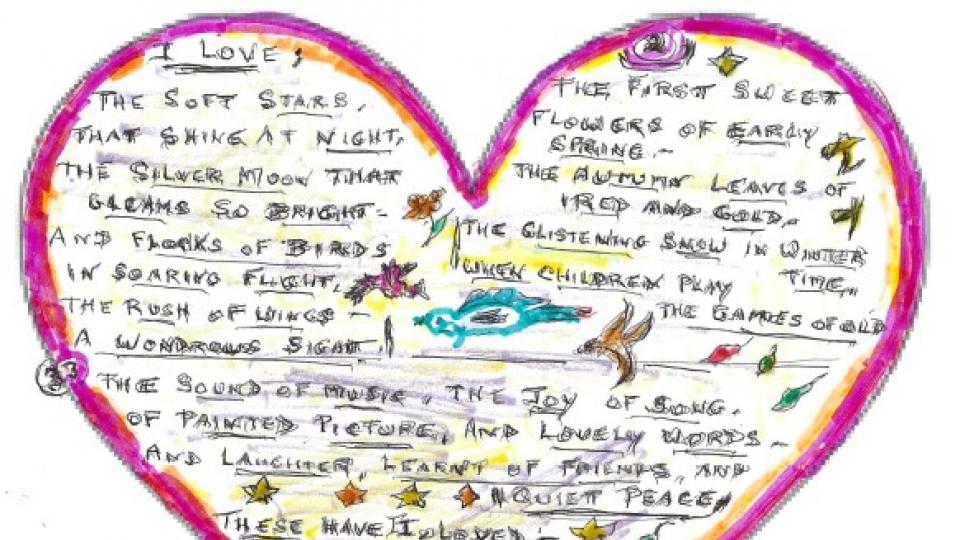 I LOVE,
THE SOFT STARS,
THAT SHINE AT NIGHT,
THE SILVER MOON THAT
GLEAMS SO BRIGHT -
AND FLOCKS OF BIRDS
IN SOARING FLIGHT,
THE RUSH OF WINGS -
A WONDROUS SIGHT,
THE FIRST SWEET
FLOWERS OF EARLY
SPRING -
THE AUTUMN LEAVES OF
RED AND GOLD.
THE GLISTENING SNOW IN WINTER
TIME,
WHEN CHILDREN PLAY
THE GAMES OF OLD
THE SOUND OF MUSIC, THE JOY OF SONG.
OF PAINTED PICTURE, AND LOVELY WORDS -
AND LAUGHTER, LEARNT OF FRIENDS, AND
QUIET PEACE,
THESE HAVE I LOVED